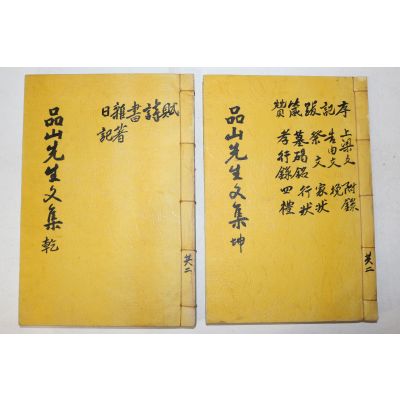 賦
詩
書
雜著
日記
品山先生文集 乾
共二
序 上梁文 附錄
記 告由文 挽
跋 祭文 家狀
箴 墓碣銘 行狀
贊 孝行錄 四禮
品山先生文集 坤
共二